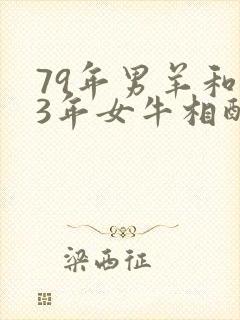 79年男羊和
3年女牛相配
梁西征